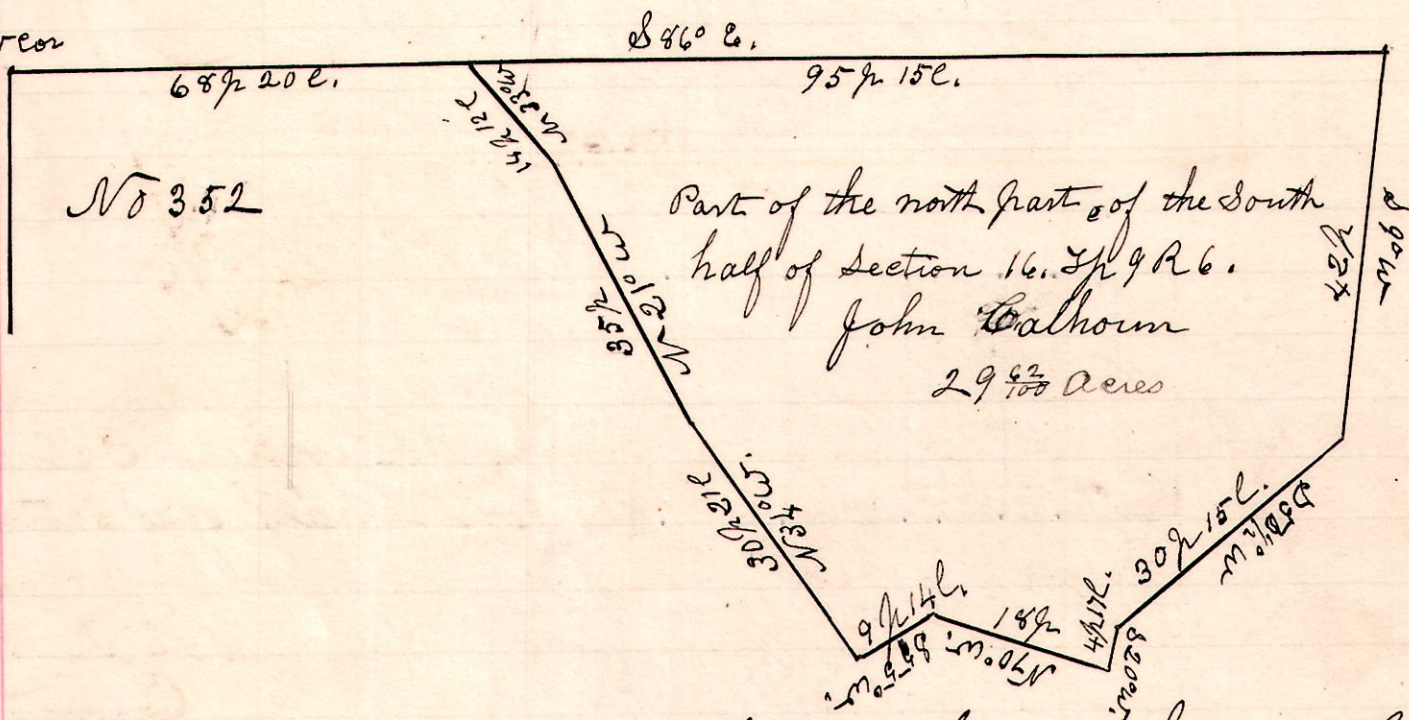 S 86° E.
68 p 20 l.
95 p 15 l.
No 352
14 p 12 l
N 33° W
35 p
N 21° W
Part of the north part of the South
half of Section 16. Tp 9 R 6.
John Calhoun
29 62/100 Acres
S 9° W
30 p 21 l
N 34° W.
9 p 14 l.
S 55° W.
18 p
N 70° W.
4 p 17 l.
S 20° W.
30 p 15 l.